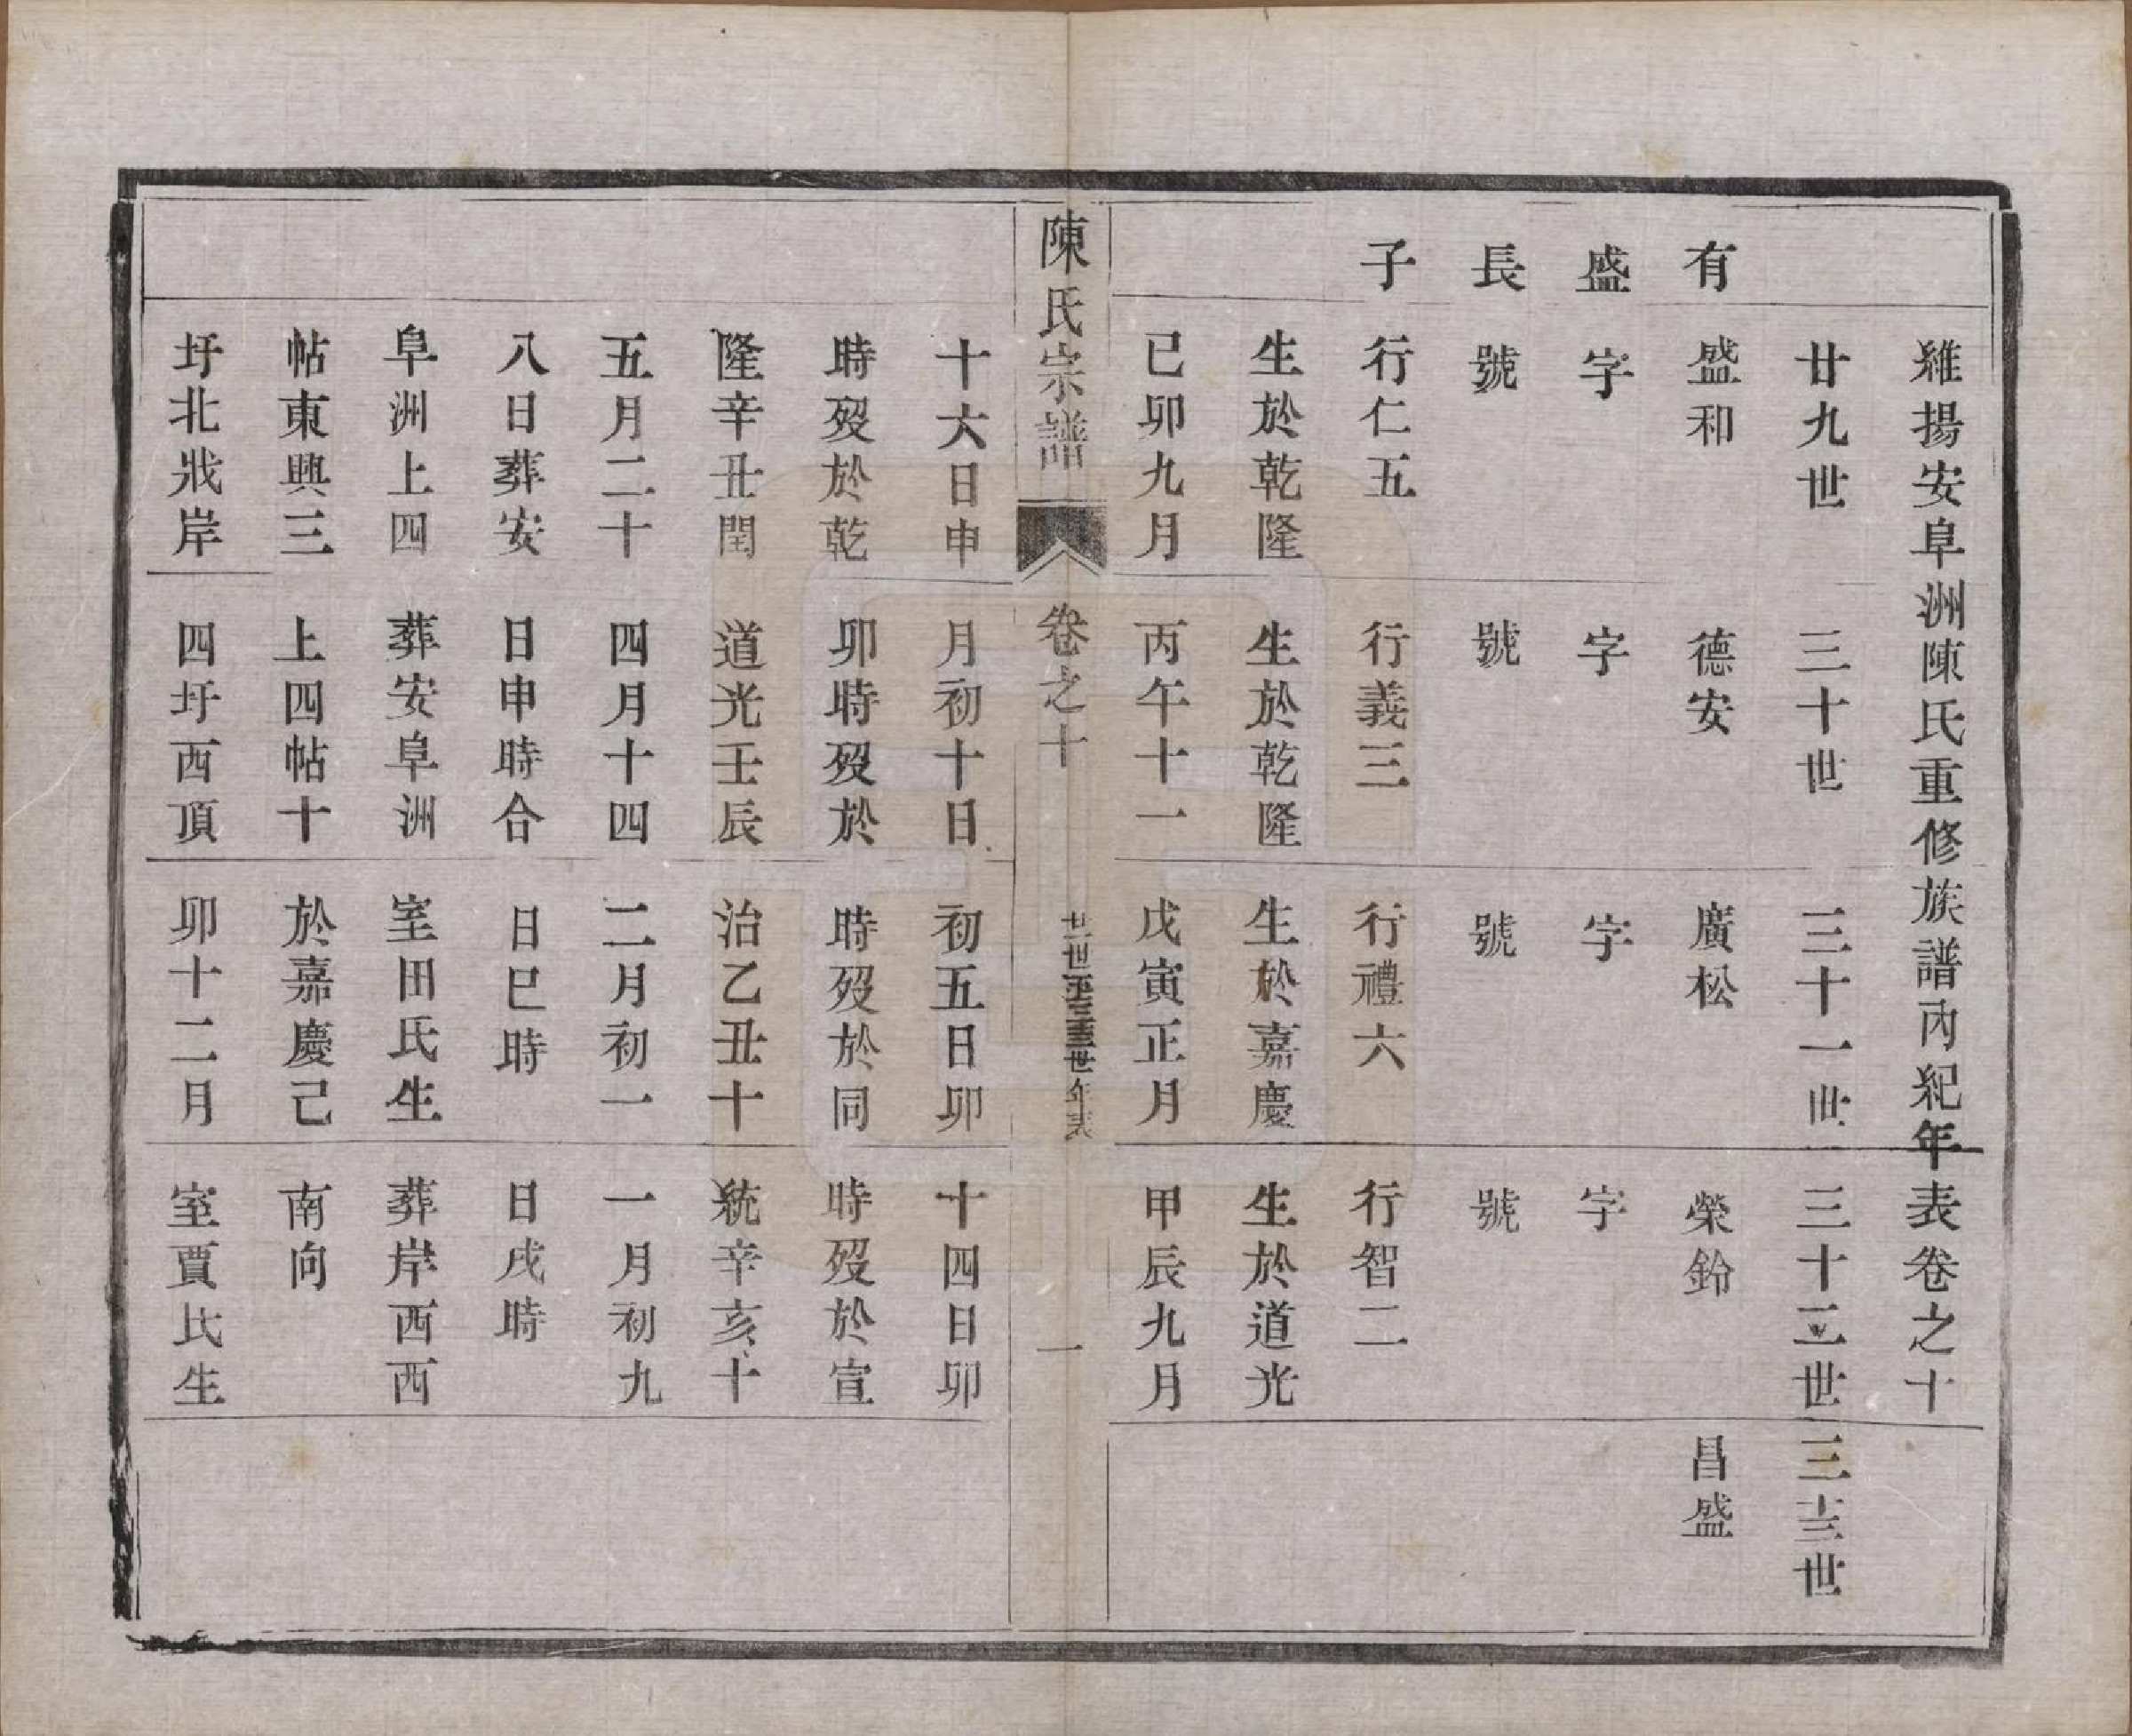 維揚安阜洲陳氏重修族譜內紀年表卷之十
有
盛
長
子
廿九世
盛和
字
號
行仁五
生於乾隆
已卯九月
十六日申
時歿於乾
隆辛丑閏
五月二十
八日葬安
阜洲上四
帖東興三
圩北戕岸
三十世
德安
字
號
行義三
生於乾隆
丙午十一
月初十日
卯時歿於
道光壬辰
四月十四
日申時合
葬安阜洲
上四帖十
四圩西頂
三十一世
廣松
字
號
行禮六
生於嘉慶
戊寅正月
初五日卯
時歿於同
治乙丑十
二月初一
日巳時
室田氏生
於嘉慶己
卯十二月
三十二世
榮鈴
字
號
行智二
生於道光
甲辰九月
十四日卯
時歿於宣
統辛亥十
一月初九
日戌時
葬岸西西
南向
室賈氏生
三十三世
昌盛
陳氏宗譜
卷之十
世至三十三世年表
一